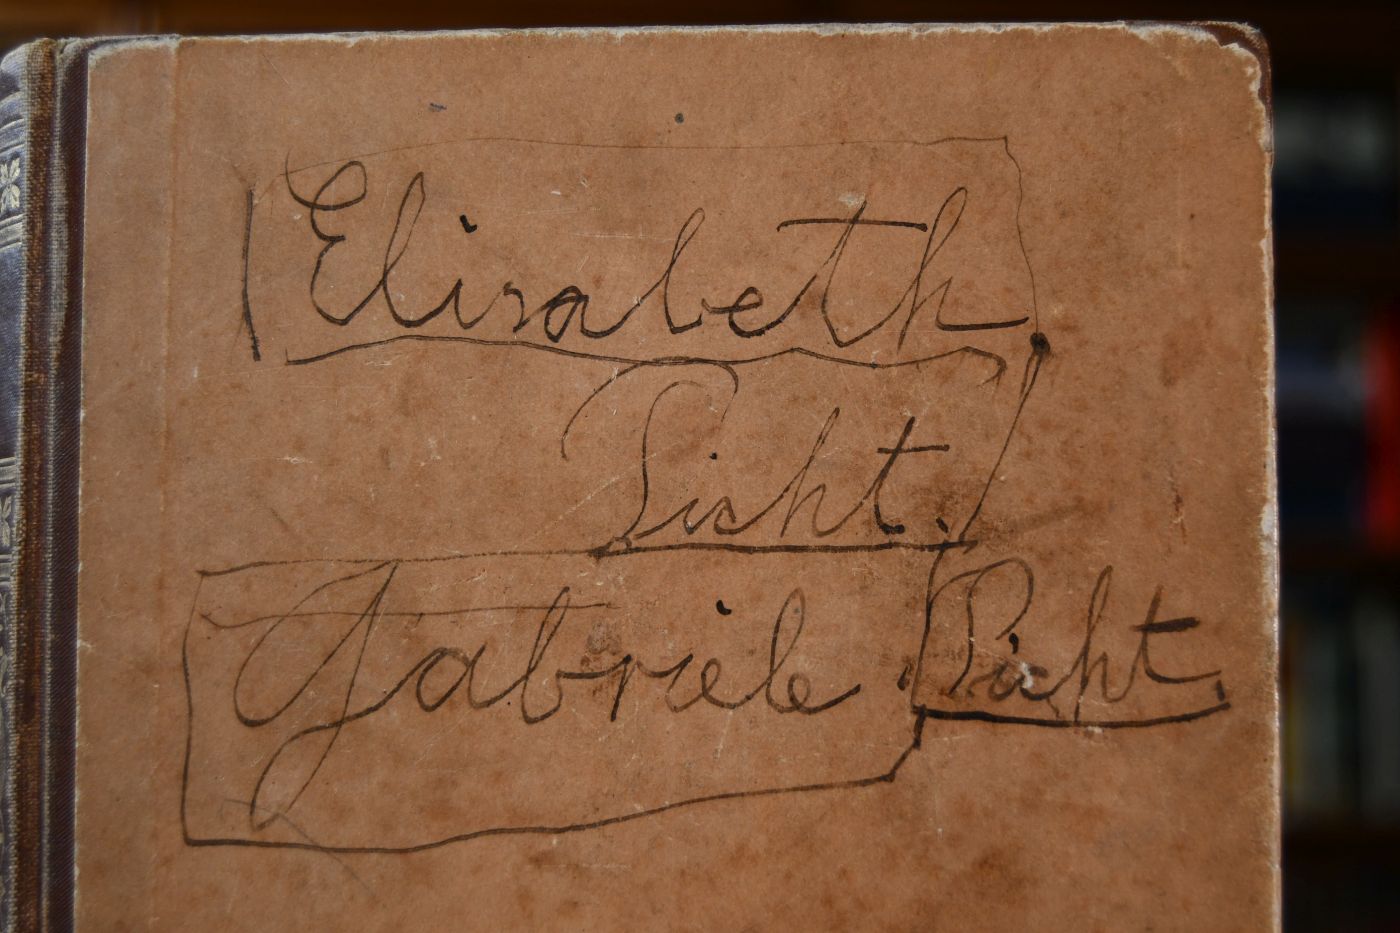 Elisabeth
Picht.
Gabriele Picht.